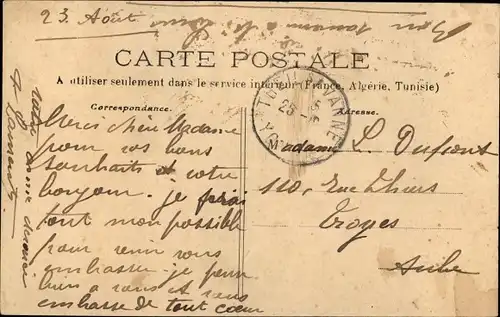 23 Août
CARTE POSTALE
A utiliser seulement dans le service intérieur (France, Algérie, Tunisie)
Correspondance.
Adresse.
Merci chère Madame
pour vos bons
souhaits et votre
bonjour. je ferai
tout mon possible
pour venir vous
embrasser. je pense
bien à vous et vous
embrasse de tout cœur
votre amie
Madame L. Dupont
110, Rue Thiers
Troyes
Aube